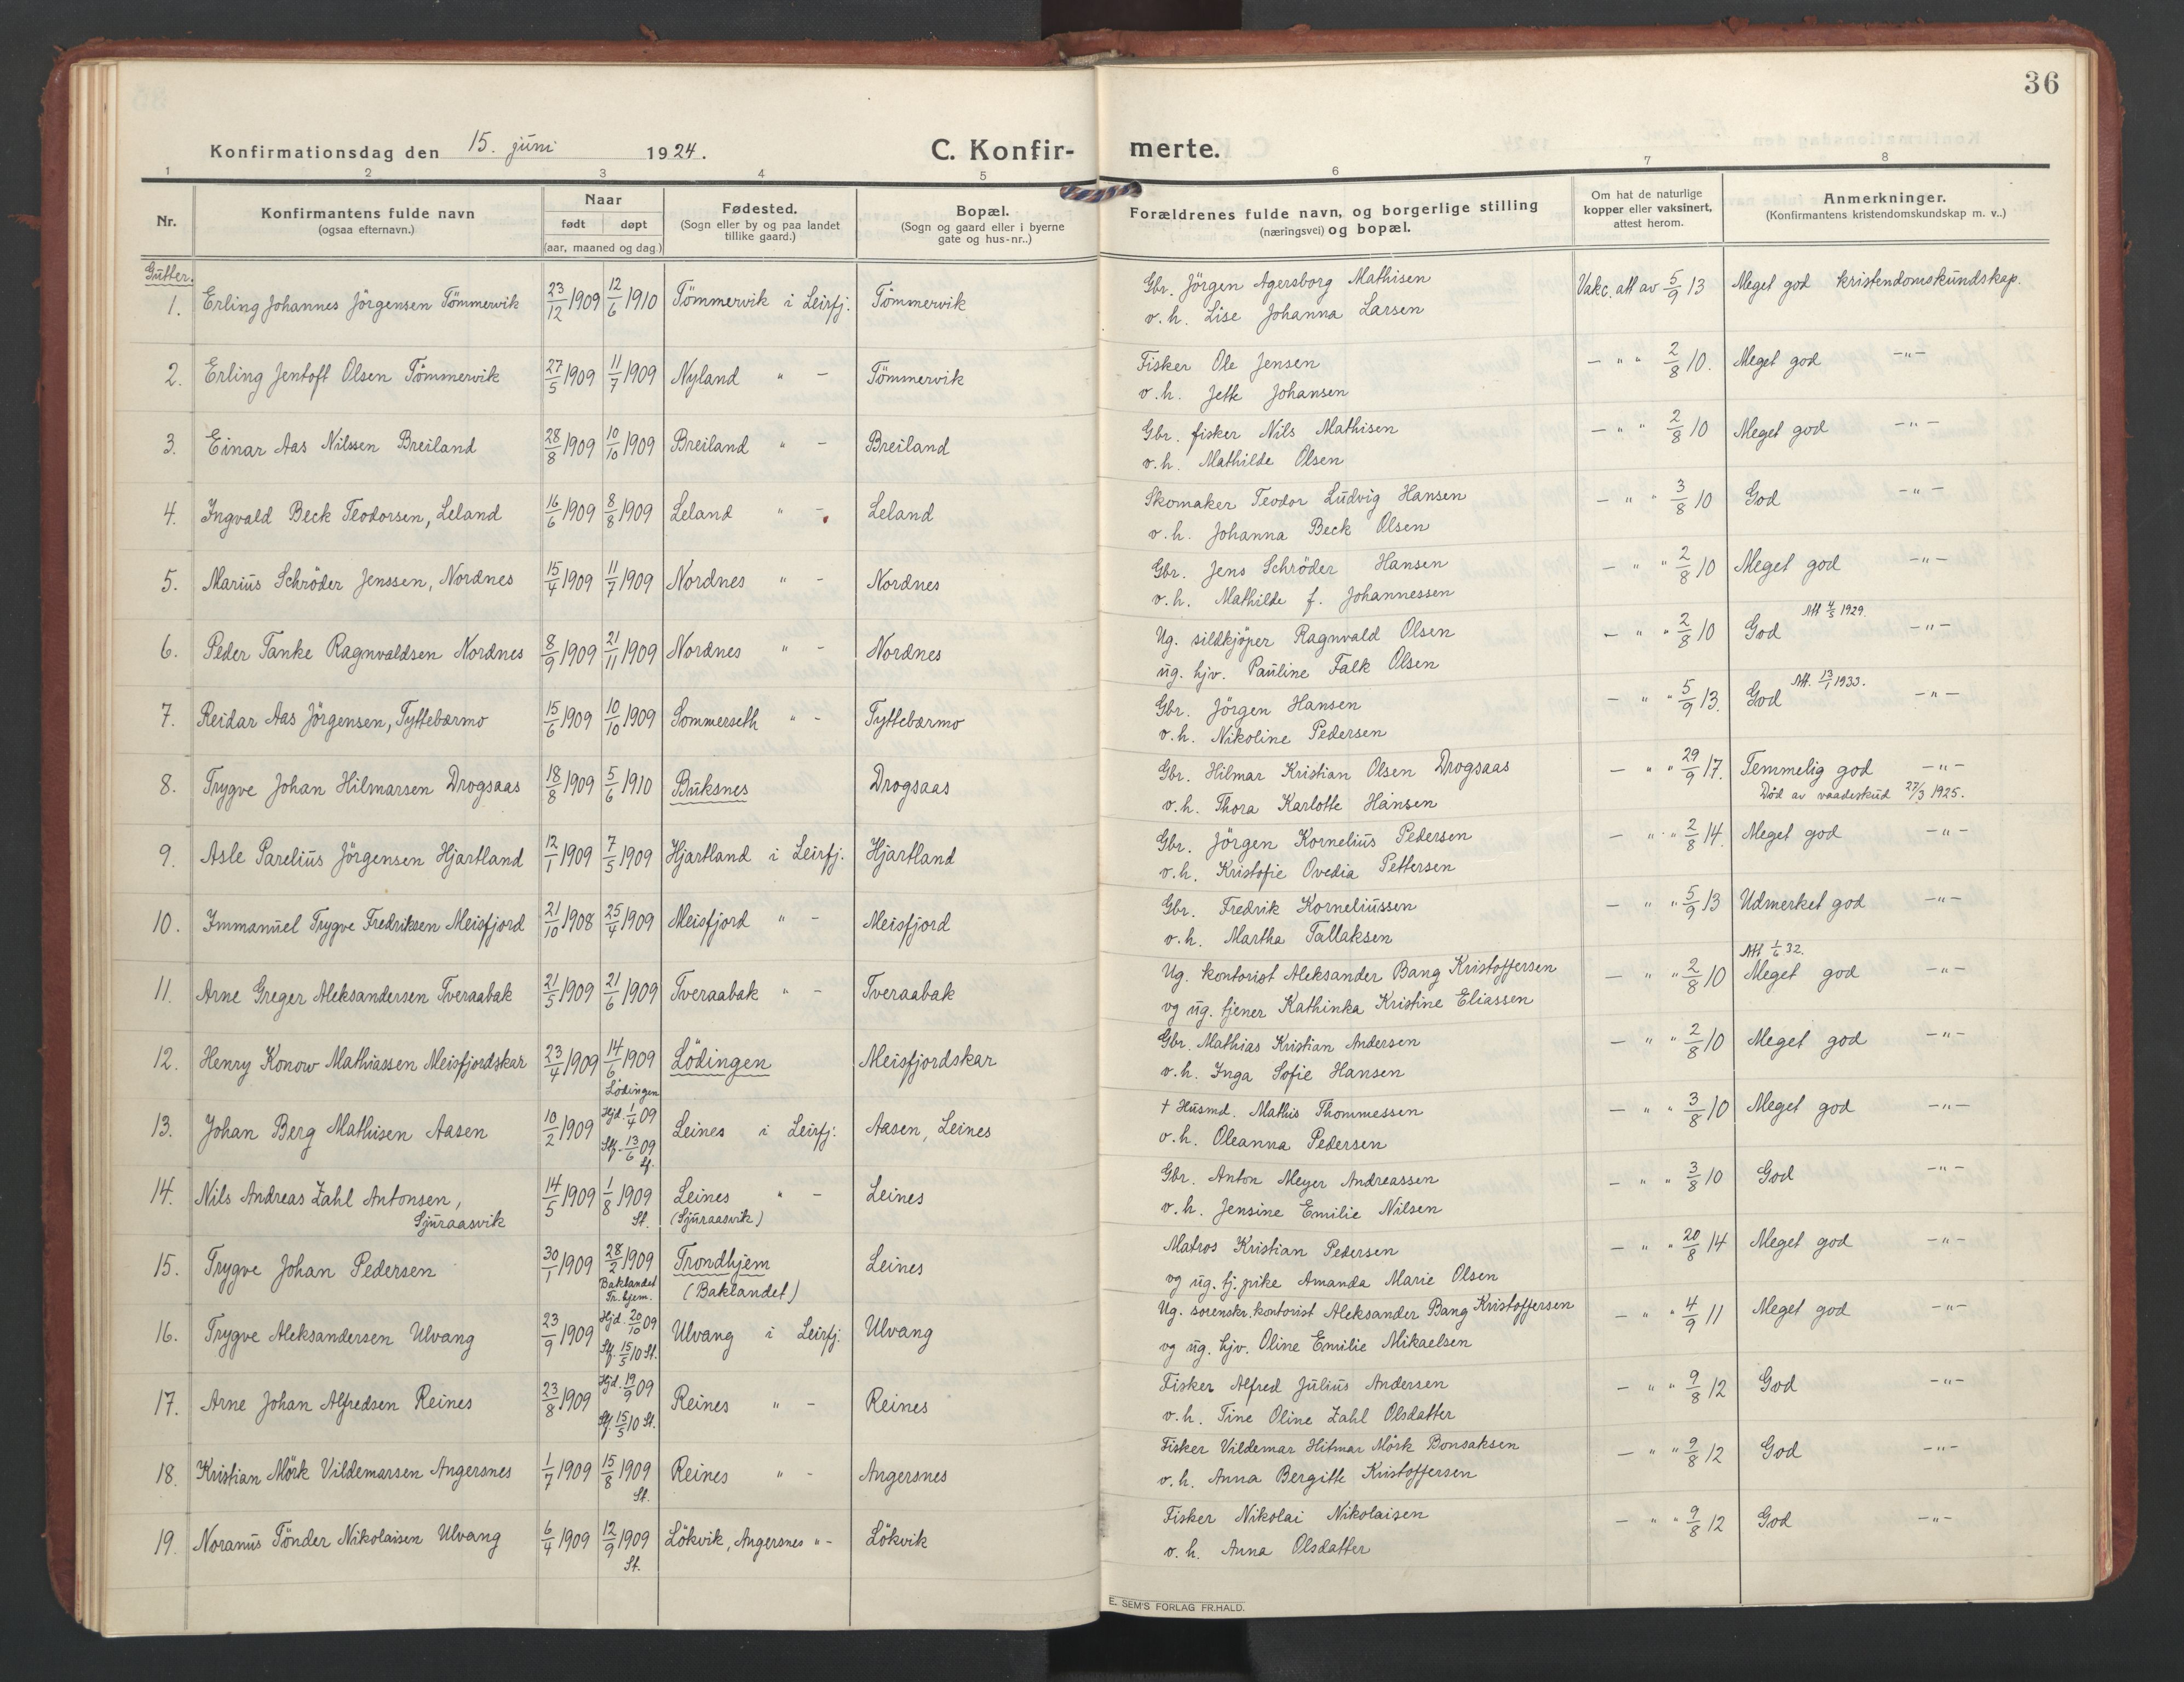 36
Konfirmationsdag den 15. juni 1924.
C. Konfir-
merte.
1 2 3 4 5 6 7 8
Nr.
Konfirmantens fulde navn
(ogsaa efternavn.)
Naar
født døpt
(aar, maaned og dag.)
Fødested.
(Sogn eller by og paa landet
tillike gaard.)
Bopæl.
(Sogn og gaard eller i byerne
gate og hus-nr..)
Forældrenes fulde navn, og borgerlige stilling
(næringsvei) og bopæl.
Om hat de naturlige
kopper eller vaksinert,
attest herom.
Anmerkninger.
(Konfirmantens kristendomskundskap m. v..)
Gutter.
1. Erling Johannes Jörgensen Tömmervik 23/12 1909 12/6 1910 Tömmervik i Leirfj. Tömmervik Gbr. Jörgen Agersborg Mathisen Vakc. att av 5/9 13 Meget god kristendomskundskap.
o. h. Lise Johanna Larsen
2. Erling Jentoft Olsen Tömmervik 27/5 1909 11/7 1909 Nyland " - Tömmervik Fisker Ole Jensen - " " 2/8 10. Meget god -"-
o. h. Jette Johansen
3. Einar Aas Nilssen Breiland 28/8 1909 10/10 1909 Breiland " - Breiland Gbr. fisker Nils Mathisen - " " 2/8 10 Meget god -"-
o. h. Mathilde Olsen
4. Ingvald Beck Teodorsen, Leland 16/6 1909 8/8 1909 Leland " - Leland Skomaker Teodor Ludvig Hansen - " " 3/8 10 God -"-
o. h. Johanna Beck Olsen
5. Marius Schröder Jenssen, Nordnes 15/4 1909 11/7 1909 Nordnes " - Nordnes Gbr. Jens Schröder Hansen - " " 2/8 10 Meget god -"-
o. h. Mathilde f. Johannessen
6. Peder Tanke Ragnvaldsen Nordnes 8/9 1909 21/11 1909 Nordnes " - Nordnes Ug. sildkjöper Ragnvald Olsen - " " 2/8 10 God Att 4/5 1929. -"-
ug. hjv. Pauline Falk Olsen
7. Reidar Aas Jörgensen, Tyttebærmo 15/6 1909 10/10 1909 Sommerseth " - Tyttebærmo Gbr. Jörgen Hansen - " " 5/9 13. God Att. 13/1 1933. -"-
o. h. Nikoline Pedersen
8. Trygve Johan Hilmarsen Drogsaas 18/8 1909 5/6 1910 Buksnes Drogsaas Gbr. Hilmar Kristian Olsen Drogsaas - " " 29/9 17. Temmelig god -"-
o. h. Thora Karlotte Hansen Död av vaadeskud 27/3 1925.
9. Asle Parelius Jörgensen Hjartland 12/1 1909 7/5 1909 Hjartland i Leirfj. Hjartland Gbr. Jörgen Kornelius Pedersen - " " 2/8 14. Meget god -"-
o. h. Kristofie Ovedia Pettersen
10. Immanuel Trygve Fredriksen Meisfjord 21/10 1908 25/4 1909 Meisfjord " - Meisfjord Gbr. Fredrik Korneliussen - " " 5/9 13 Udmerket god -"-
o. h. Martha Tallaksen
Att 1/6 32.
11. Arne Greger Aleksandersen Tveraabak 21/5 1909 21/6 1909 Tveraabak " - Tveraabak Ug. kontorist Aleksander Bang Kristoffersen - " " 2/8 10 Meget god -"-
og ug. tjener Kathinka Kristine Eliassen
12. Henry Konow Mathiassen Meisfjordskar 23/4 1909 14/6 1909 Lödingen Lödingen Meisfjordskar Gbr. Mathias Kristian Andersen - " " 2/8 10 Meget god -"-
o. h. Inga Sofie Hansen
13. Johan Berg Mathisen Aasen 10/2 1909 Hjd. 1/4 09 Leines i Leirfj. Aasen, Leines + Husmd. Mathis Thommessen - " " 3/8 10 Meget god -"-
Stf. 13/6 09 o. h. Oleanna Pedersen
14. Nils Andreas Zahl Antonsen, 14/5 1909 1/8 1909 Leines " - Leines Gbr. Anton Meyer Andreassen - " " 3/8 10 God -"-
Sjuraasvik St. (Sjuraasvik) o. h. Jensine Emilie Nilsen
15. Trygve Johan Pedersen 30/1 1909 28/2 1909 Trondhjem Leines Matros Kristian Pedersen - " " 20/8 14 Meget god -"-
Baklandet Tr.hjem. (Baklandet) og ug. tj. pike Amanda Marie Olsen
16. Trygve Aleksandersen Ulvang 23/9 1909 Hjd. 20/10 09 Ulvang i Leirfj. Ulvang Ug. sorenskr. kontorist Aleksander Bang Kristoffersen - " " 4/9 11 Meget god -"-
Stf. 15/5 10 St. og ug. hjv. Oline Emilie Mikaelsen
17. Arne Johan Alfredsen Reines 23/8 1909 Hjd. 19/9 09 Reines " - Reines Fisker Alfred Julius Andersen - " " 9/8 12 God -"-
Stf. 15/5 10 St. o. h. Tine Oline Zahl Olsdatter
18. Kristian Mörk Vildemarsen Angersnes 1/7 1909 15/8 1909 Reines " - Angersnes Fisker Vildemar Hitmar Mörk Bonsaksen - " " 9/8 12 God -"-
St. o. h. Anna Bergitte Kristoffersen
19. Noranus Tönder Nikolaisen Ulvang 6/4 1909 12/9 1909 Lökvik, Angersnes "- Lökvik Fisker Nikolai Nikolaisen - " " 9/8 12 God -"-
St. o. h. Anna Olsdatter
E. SEM'S FORLAG FR.HALD.